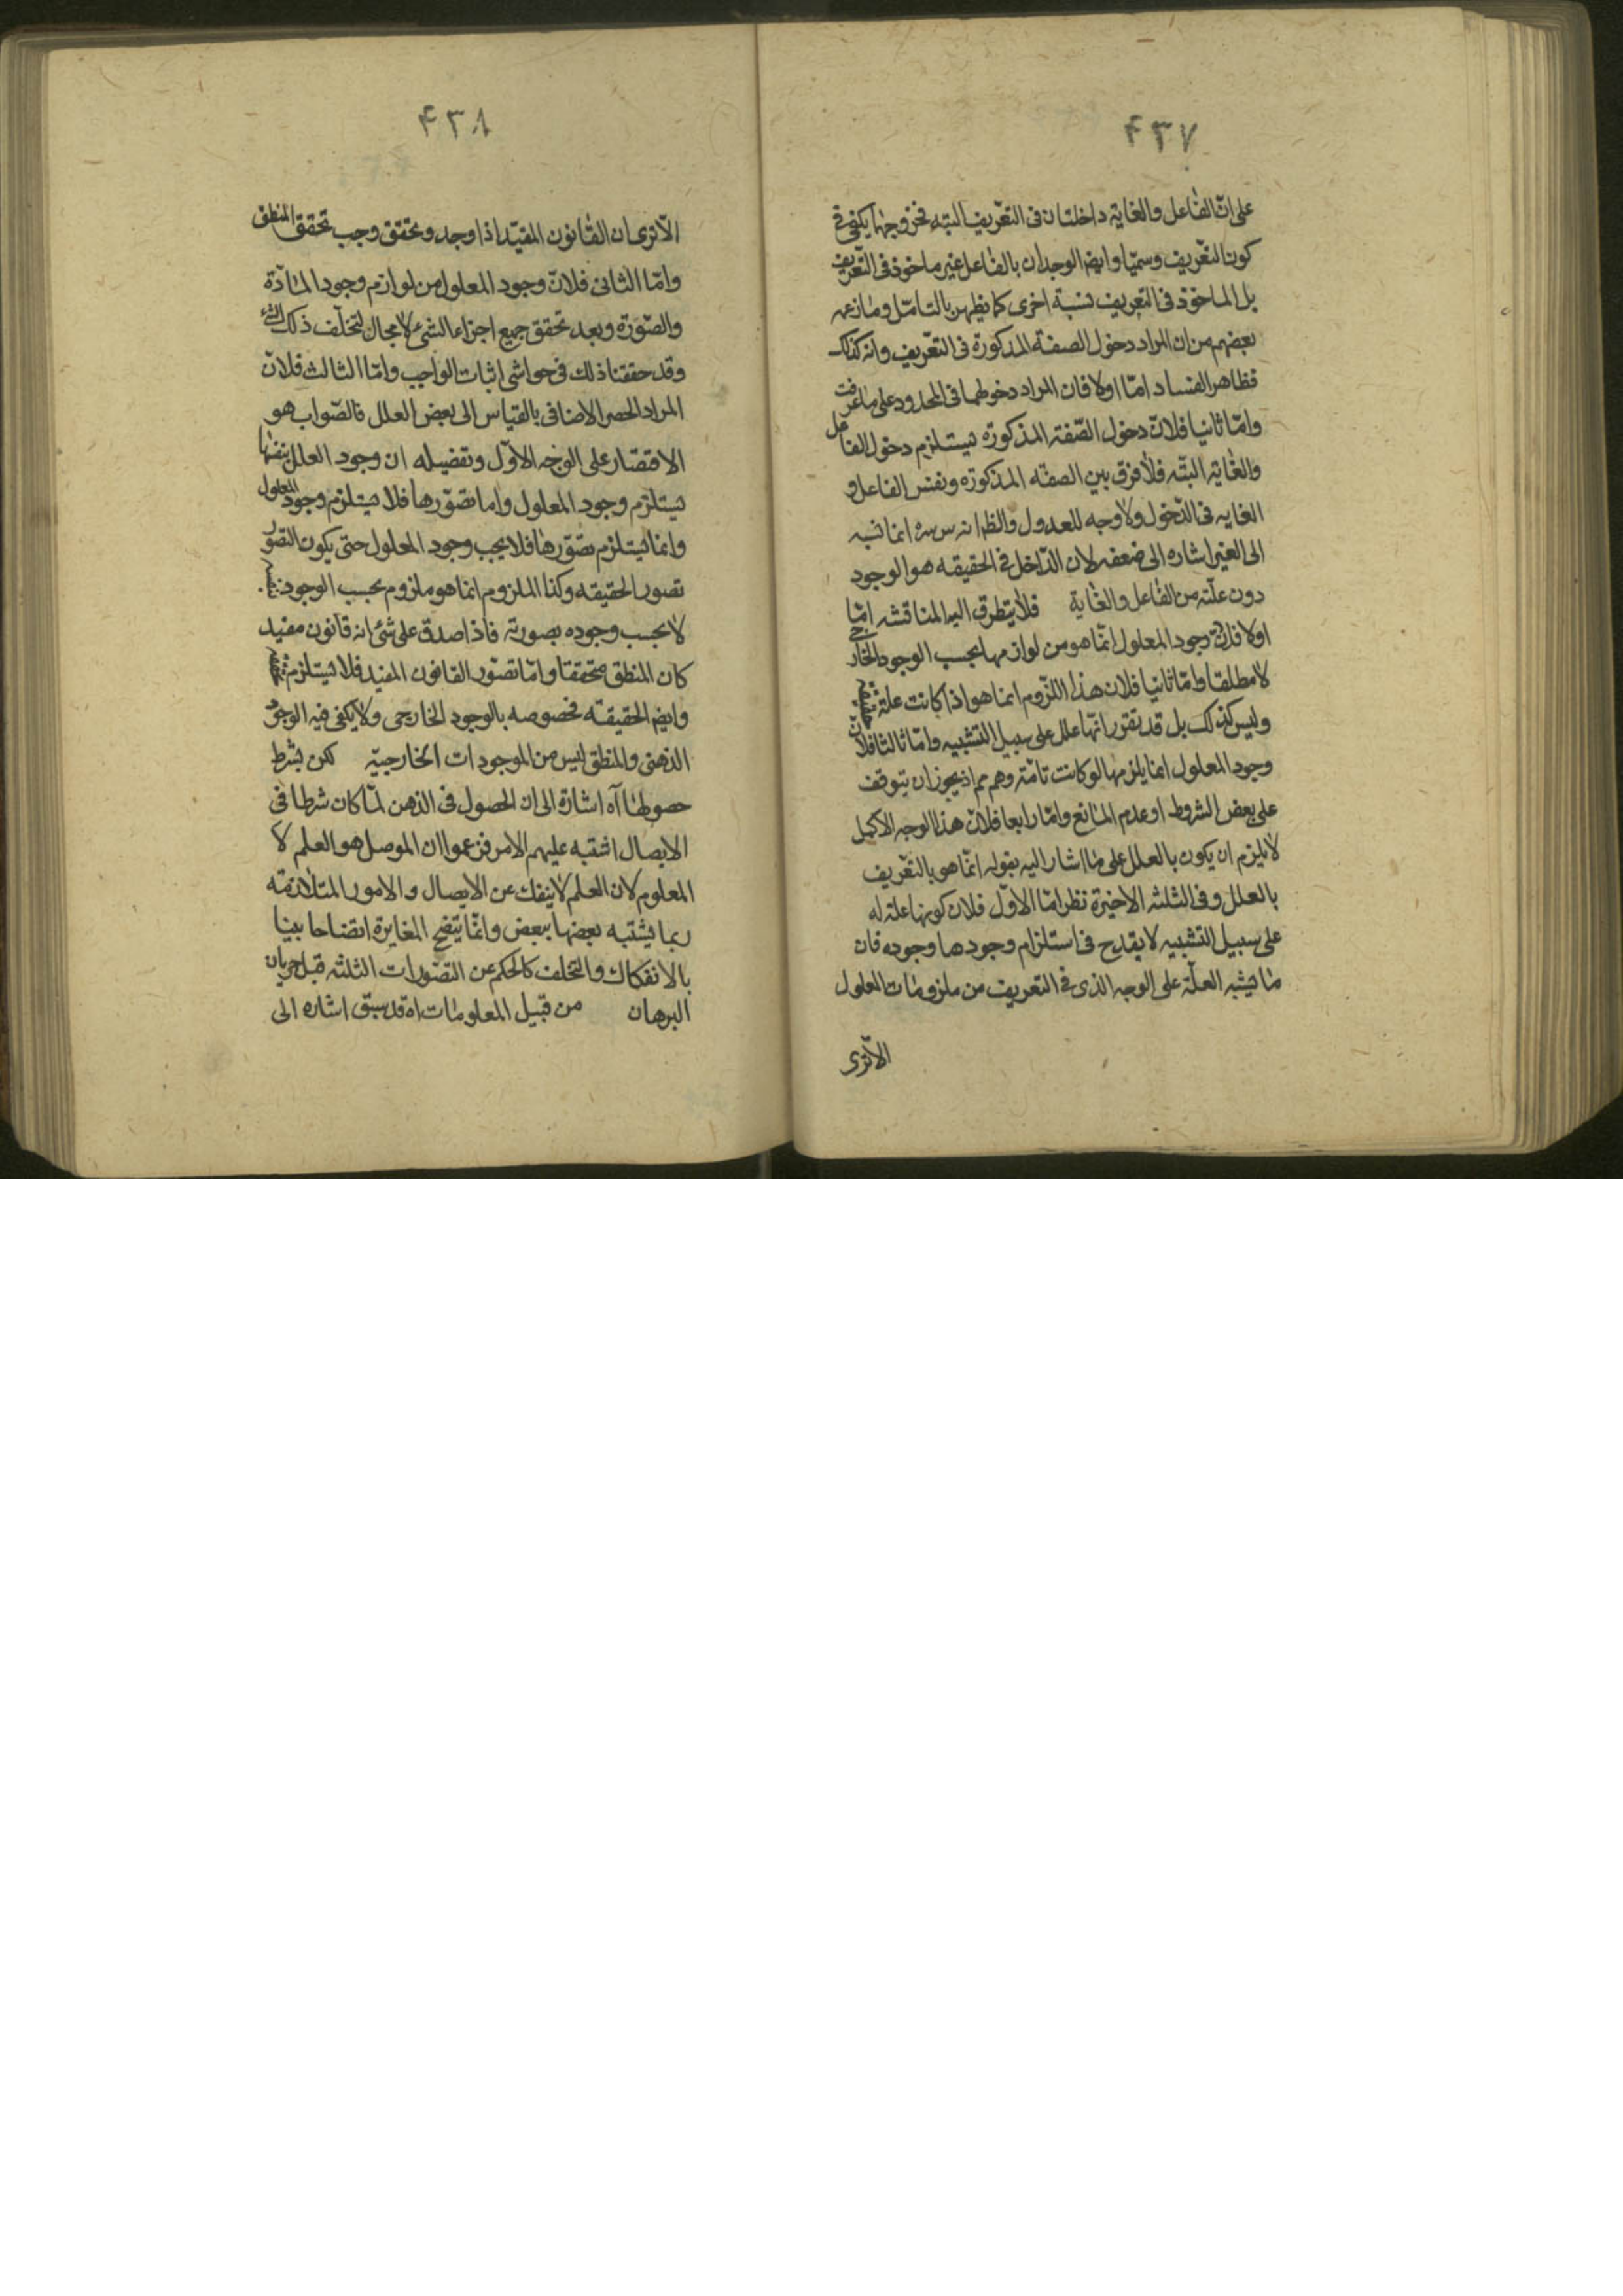 ۴۳۷
على ان الفاعل والغاية داخلتان فى التعريف البته فخروجهما يكفى فى
كون التعريف رسميا وايضا لوجدان بالفاعل غير ماخوذ فى التعريف
بل الماخوذ فى التعريف نسبة اخرى كما يظهر بالتامل وما زعمه
بعضهم من ان المراد دخول الصفة المذكورة فى التعريف وانه كذلك
فظاهر الفساد اما اولا فان المراد دخولهما فى المحدود على ما عرفت
واما ثانيا فلان دخول الصفة المذكورة يستلزم دخول الفاعل
والغاية البته فلا فرق بين الصفه المذكوره ونفس الفاعل و
الغايه فى الدخول ولا وجه للعدول والظ انه س سره انما نسبه
الى الغير اشاره الى ضعفه لان الداخل فى الحقيقه هو الوجود
دون علته من الفاعل والغاية فلا يتطرق اليه المناقشه اما
اولا فلان وجود المعلول انما هو من لوازمها بحسب الوجود الخارجى
لا مطلقا واما ثانيا فلان هذا اللزوم انما هو اذا كانت علة
وليس كذلك بل قد تقرر انها علل على سبيل التشبيه واما ثالثا فلان
وجود المعلول انما يلزمها لو كانت تامة وهو مم اذ يجوز ان يتوقف
على بعض الشروط او عدم المانع واما رابعا فلان هذا الوجه الاكمل
لا يلزم ان يكون بالعلل على ما اشار اليه بقوله انما هو بالتعريف
بالعلل وفى الثلثه الاخيرة نظر اما الاول فلان كونها علة له
على سبيل التشبيه لا يقدح فى استلزام وجودها وجوده فان
ما يشبه العلة على الوجه الذى فى التعريف من ملزومات المعلول
الا ترى
۴۳۸
الا ترى ان القانون المقيد اذا وجد وتحقق وجب تحقق المنطق
واما الثانى فلان وجود المعلول من لوازم وجود المادة
والصورة وبعد تحقق جميع اجزاء الشئ لا مجال لتخلف ذلك الشئ
وقد حققنا ذلك فى حواشى اثبات الواجب واما الثالث فلان
المراد الحصر الاضافى بالقياس الى بعض العلل فالصواب هو
الاقتصار على الوجه الاول وتفصيله ان وجود العلل بنفسها
يستلزم وجود المعلول واما تصورها فلا يستلزم وجود المعلول
وانما يستلزم تصورها فلا يجب وجود المعلول حتى يكون التصور
تصور الحقيقه وكذا الملزوم انما هو ملزوم بحسب الوجود
لا بحسب وجوده بصورته فاذا صدق على شئ انه قانون مفيد
كان المنطق متحققا واما تصور القانون المفيد فلا يستلزم
وايضا الحقيقه مخصوصه بالوجود الخارجى ولا يكفى فيه الوجود
الذهنى والمنطق ليس من الموجودات الخارجية لكن بشرط
حصولها آه اشارة الى ان الحصول فى الذهن لما كان شرطا فى
الايصال اشتبه عليهم الامر فزعموا ان الموصل هو العلم لا
المعلوم لان العلم لا ينفك عن الايصال والامور المتلازمة
ربما يشتبه بعضها ببعض وانما يتضح المغايرة اتضاحا بينا
بالانفكاك والتخلف كالحكم عن التصورات الثلثه قبل جريان
البرهان من قبيل المعلومات اه قد سبق اشاره الى